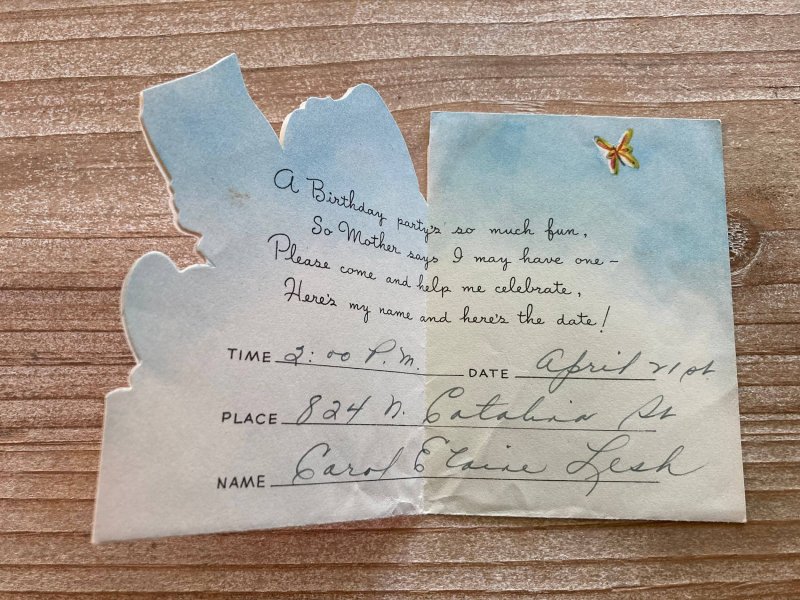 A Birthday party's so much fun,
So Mother says I may have one –
Please come and help me celebrate,
Here's my name and here's the date!
TIME 2:00 P.M. DATE April 21st.
PLACE 824 N. Catalina St
NAME Carol Elaine Lesh